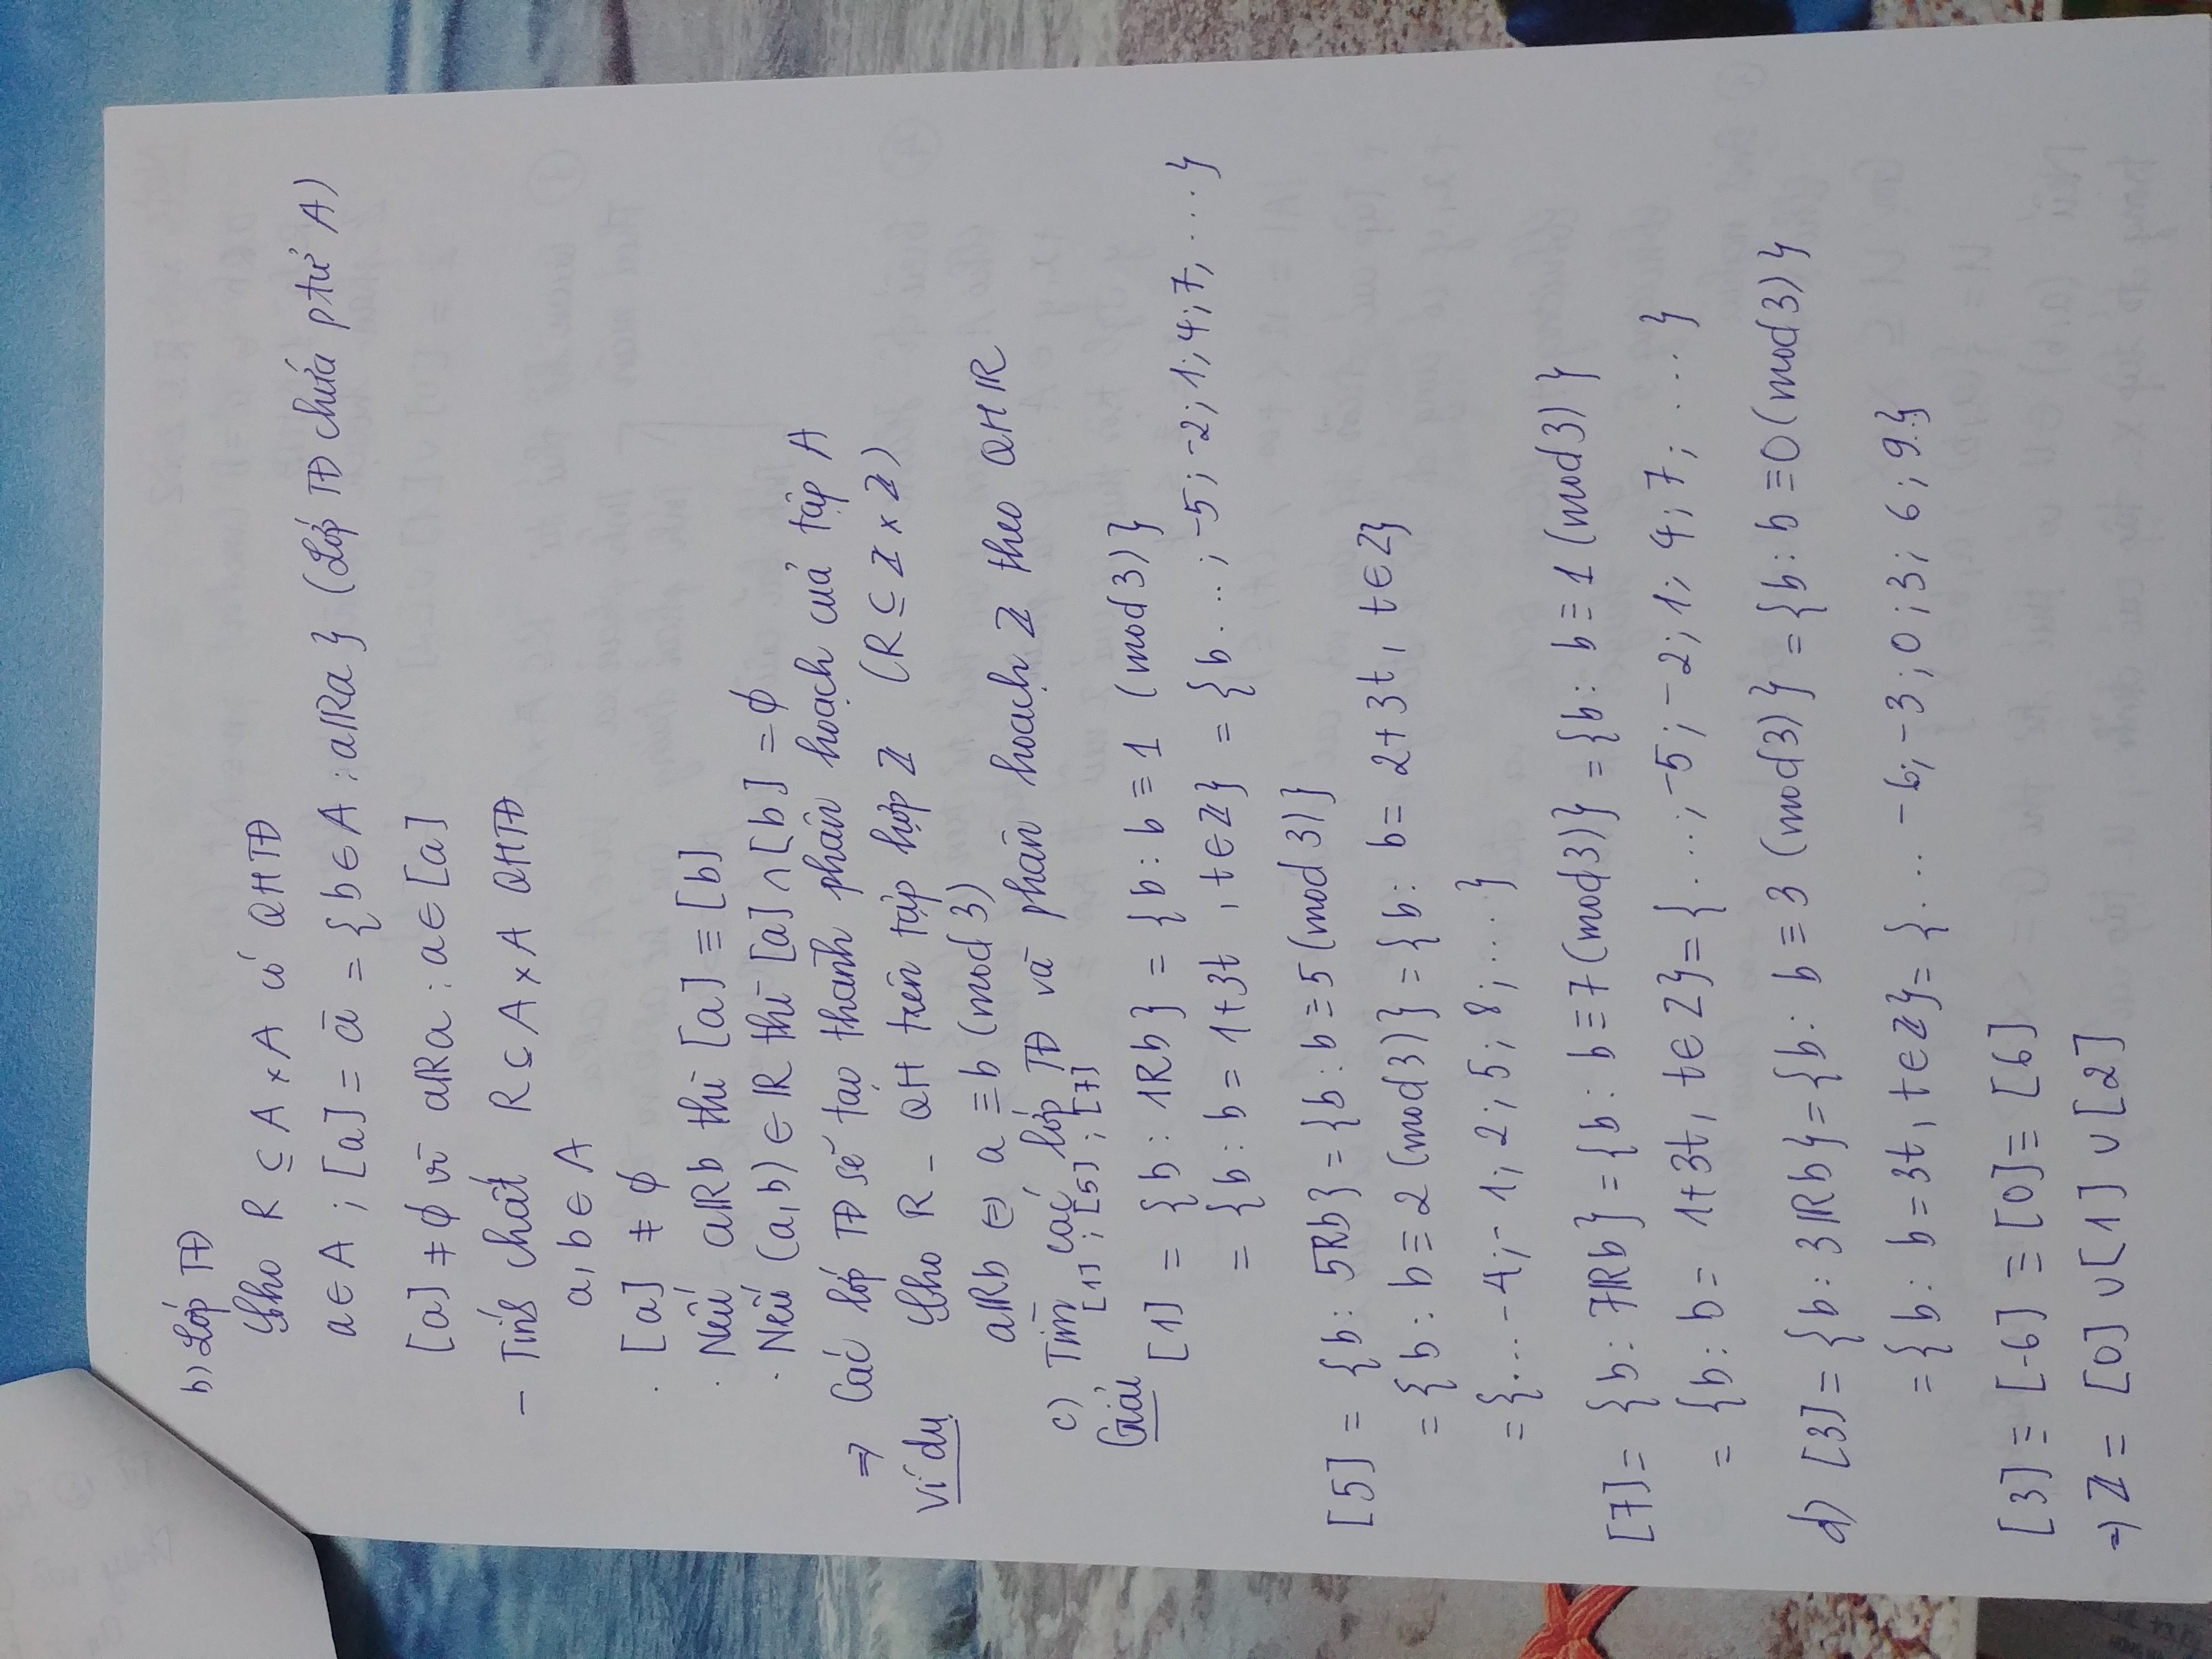 b) Lớp TĐ
Cho R ⊆ A × A có QHTĐ
a ∈ A ; [a] = ā = {b ∈ A : aRa} (Lớp TĐ chứa ptử A)
[a] ≠ ∅ vì aRa : a ∈ [a]
- Tính chất R ⊆ A × A QHTĐ
a, b ∈ A
. [a] ≠ ∅
. Nếu aRb thì [a] ≡ [b]
. Nếu (a,b) ∈ R thì [a] ∩ [b] = ∅
⇒ Các lớp TĐ sẽ tạo thành phân hoạch của tập A
Ví dụ Cho R - QH trên tập hợp Z (R ⊆ Z × Z)
aRb ⇔ a ≡ b (mod 3)
c) Tìm các lớp TĐ và phân hoạch Z theo QH R
[1] ; [5] ; [7]
Giải
[1] = {b : 1Rb} = {b : b ≡ 1 (mod 3)}
= {b : b = 1+3t , t ∈ Z} = {b ... ; -5 ; -2 ; 1 ; 4 ; 7, ...}
[5] = {b : 5Rb} = {b : b ≡ 5 (mod 3)}
= {b : b ≡ 2 (mod 3)} = {b : b = 2+3t, t ∈ Z}
= {... -4 ; -1 ; 2 ; 5 ; 8 ; ...}
[7] = {b : 7Rb} = {b : b ≡ 7 (mod 3)} = {b : b ≡ 1 (mod 3)}
= {b : b = 1+3t, t ∈ Z} = {... ; -5 ; -2 ; 1 ; 4 ; 7 ; ...}
d) [3] = {b : 3Rb} = {b : b ≡ 3 (mod 3)} = {b : b ≡ 0 (mod 3)}
= {b : b = 3t, t ∈ Z} = {... -6 ; -3 ; 0 ; 3 ; 6 ; 9..}
[3] ≡ [-6] ≡ [0] ≡ [6]
⇒ Z = [0] ∪ [1] ∪ [2]